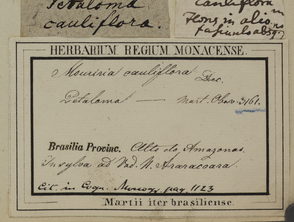 Petaloma
cauliflora.
cauliflora
flore in alio
HERBARIUM REGIUM MONACENSE.
Mouriria cauliflora Dec.
Petaloma — Mart. Obs. 3161.
Brasilia Provinc. Alto do Amazonas.
In sylva ad Araracoara.
Cit. in Cogn. Monogr. pag. 1123
Martii iter brasiliense.